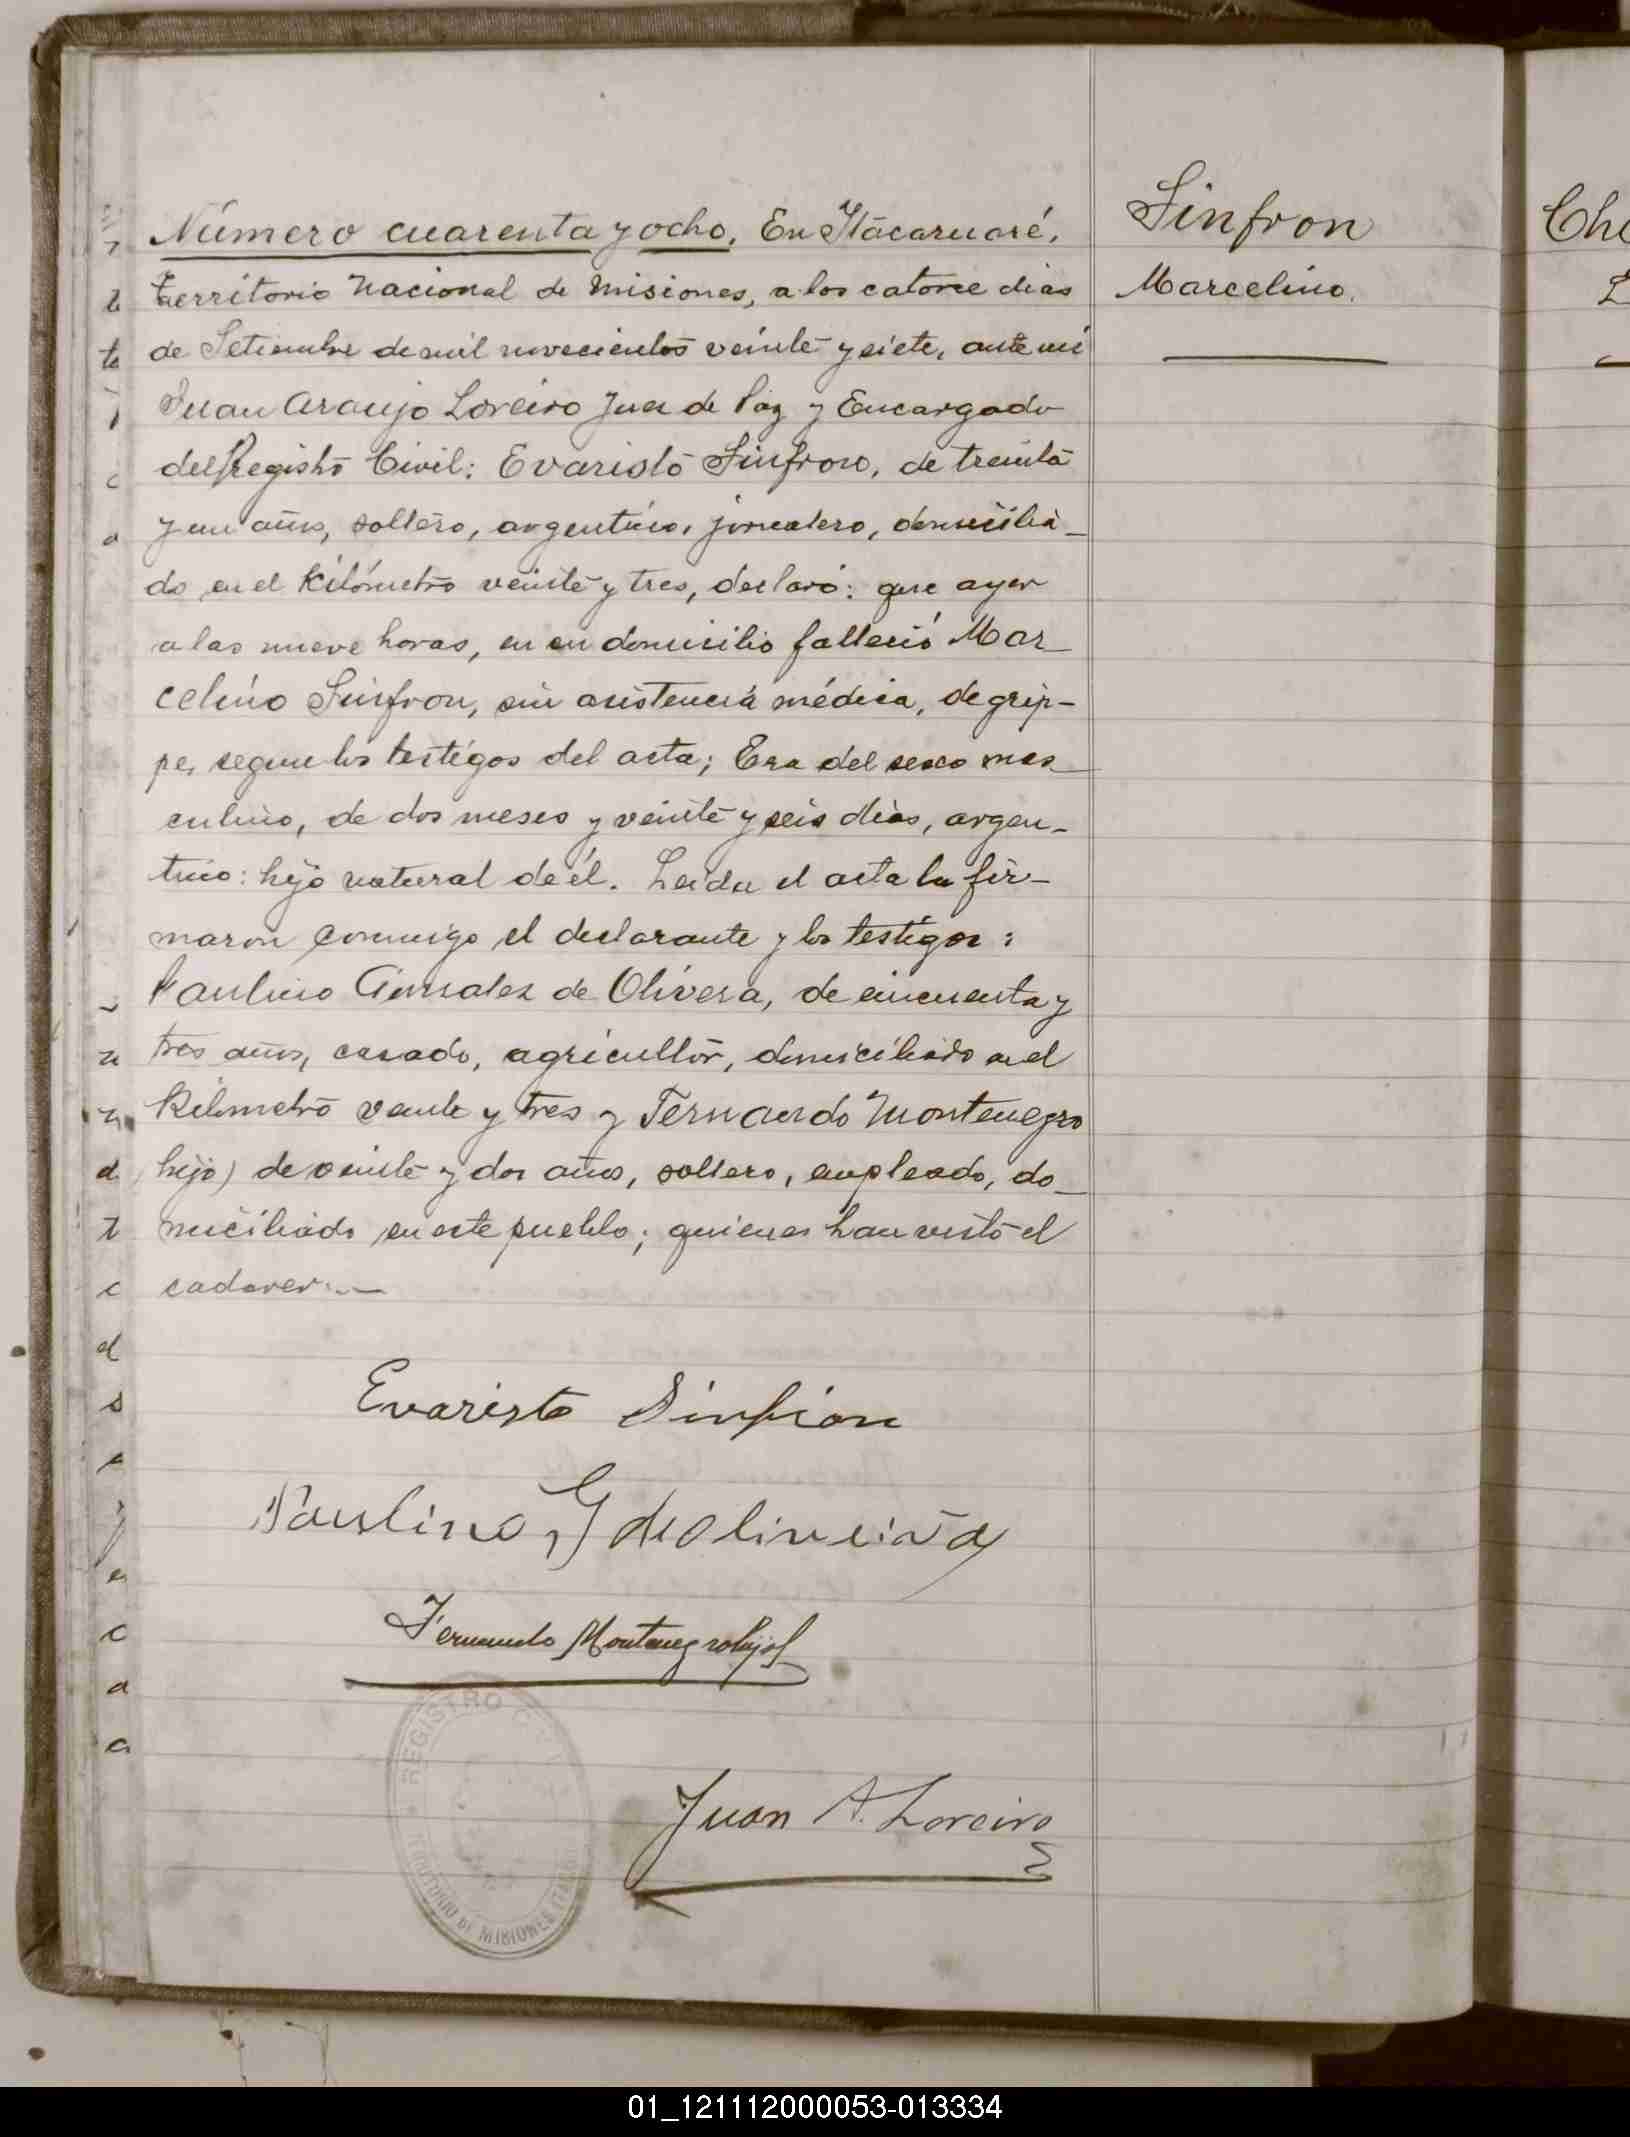 Número cuarenta y ocho. En Itacaruaré,
Territorio Nacional de Misiones, a los catorce dias
de Setiembre de mil novecientos veinte y siete, ante mi
Juan Araujo Loreiro Juez de Paz y Encargado
del Registro Civil: Evaristo Sinfron, de treinta
y un años, soltero, argentino, jornalero, domicilia-
do en el Kilómetro veinte y tres, declaró: que ayer
a las nueve horas, en su domicilio falleció Mar-
celino Sinfron, sin asistencia médica, de grip-
pe, segun los testigos del acta; Era del sexo mas-
culino, de dos meses y veinte y seis dias, argen-
tino: hijo natural de él. Leida el acta la fir-
maron conmigo el declarante y los testigos:
Paulino Gonsalez de Olivera, de cincuenta y
tres años, casado, agricultor, domiciliado en el
Kilometro veinte y tres y Fernando Montenegro
hijo) de veinte y dos años, soltero, empleado, do-
miciliado en este pueblo; quienes han visto el
cadaver.
Sinfron
Marcelino.
Che
Evaristo Sinfron
Paulino G de oliveira
Fernando Montenegro hijo
REGISTRO CIVIL
TERRITORIO DE MISIONES
Juan A. Loreiro
01_121112000053-013334